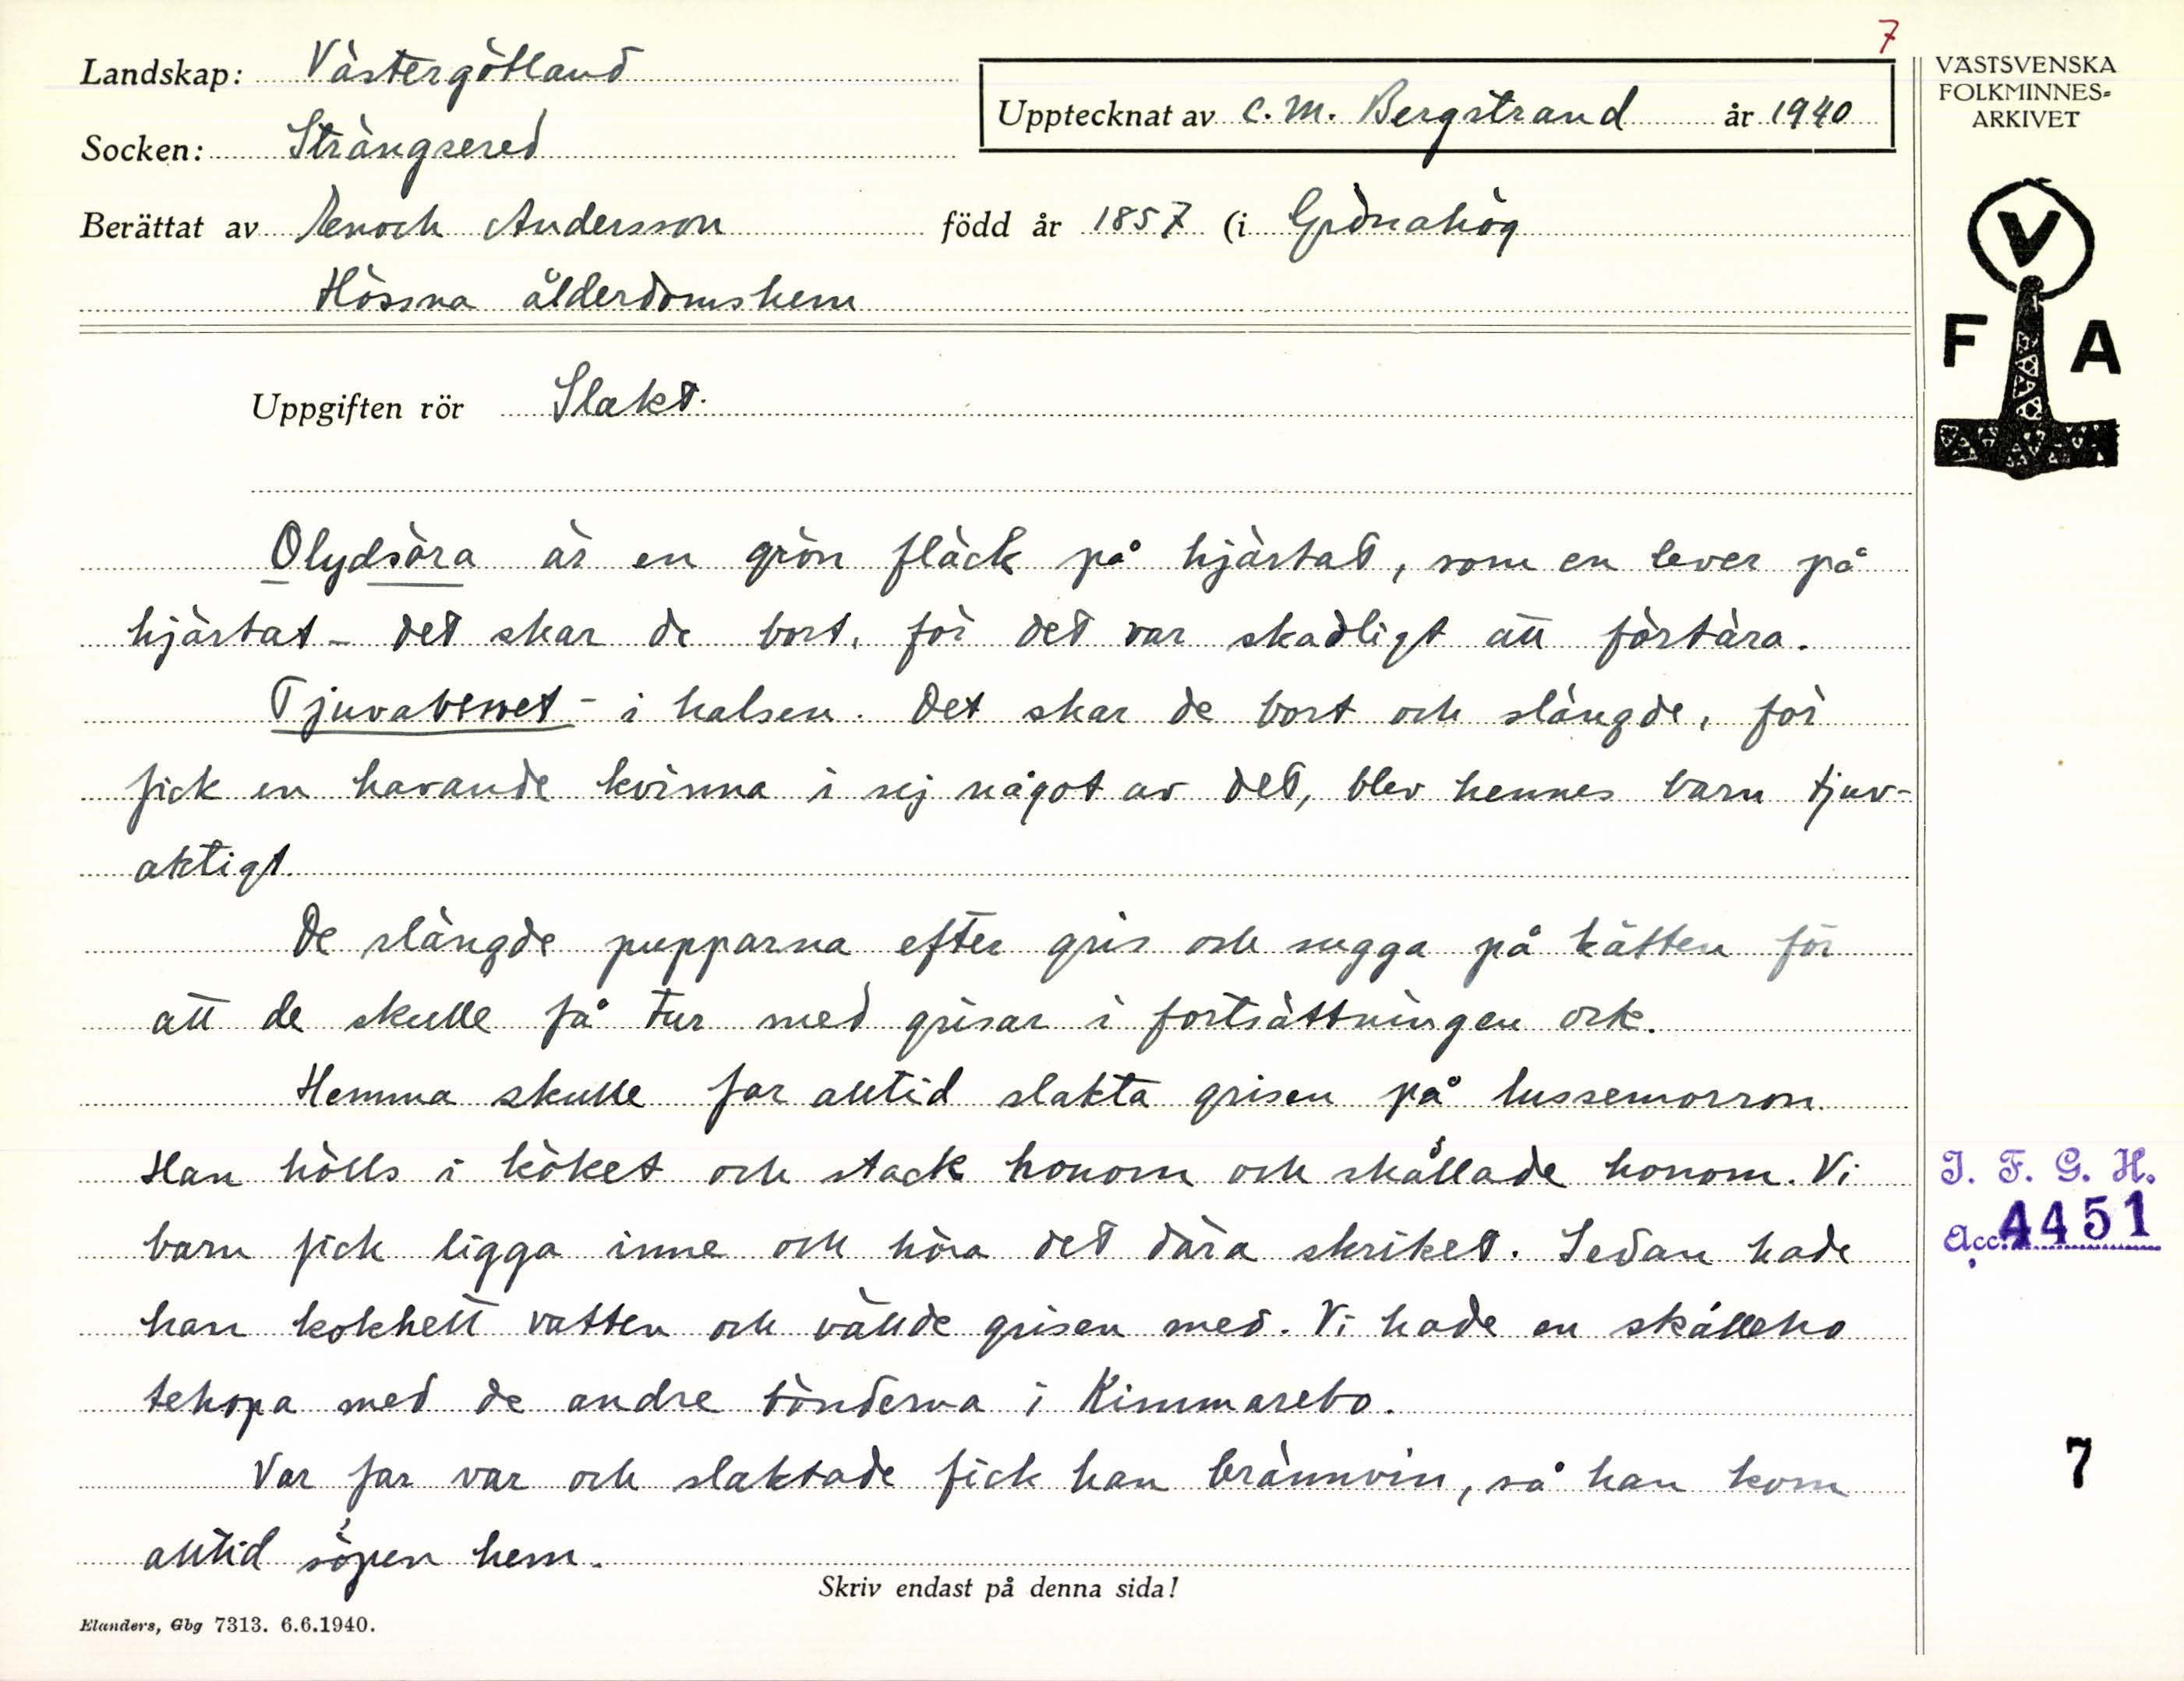 7
Landskap: Västergötland
Upptecknat av C. M. Bergstrand år 1940
Socken: Strängsered
Berättat av Enoch Andersson född år 1857 (i Grönahög
Hössna ålderdomshem
Uppgiften rör Slakt.
Olydsåra är en grön fläck på hjärtat, som en lever på
hjärtat - det skar de bort, för det var skadligt att förtära.
Tjuvabenet - i halsen. Det skar de bort och slängde, för
fick en havande kvinna i sej något av det, blev hennes barn tjuv-
aktigt.
De slängde pupparna efter gris och sugga på kätten för
att de skulle få tur med grisar i fortsättningen ock.
Hemma skulle far alltid slakta grisen på lussemorron.
Han hölls i köket och stack honom och skållade honom. Vi
barn fick ligga inne och höra det dära skriket. Sedan hade
han kokhett vatten och vällde grisen med. Vi hade en skålleho
tehopa med de andre bönderna i Kimmarebo.
Var far var och slaktade fick han brännvin, så han kom
alltid söpen hem.
Skriv endast på denna sida!
Elanders, Gbg 7313. 6.6.1940.
VÄSTSVENSKA
FOLKMINNES-
ARKIVET
V
F A
I. F. G. H.
Acc. 4451
7